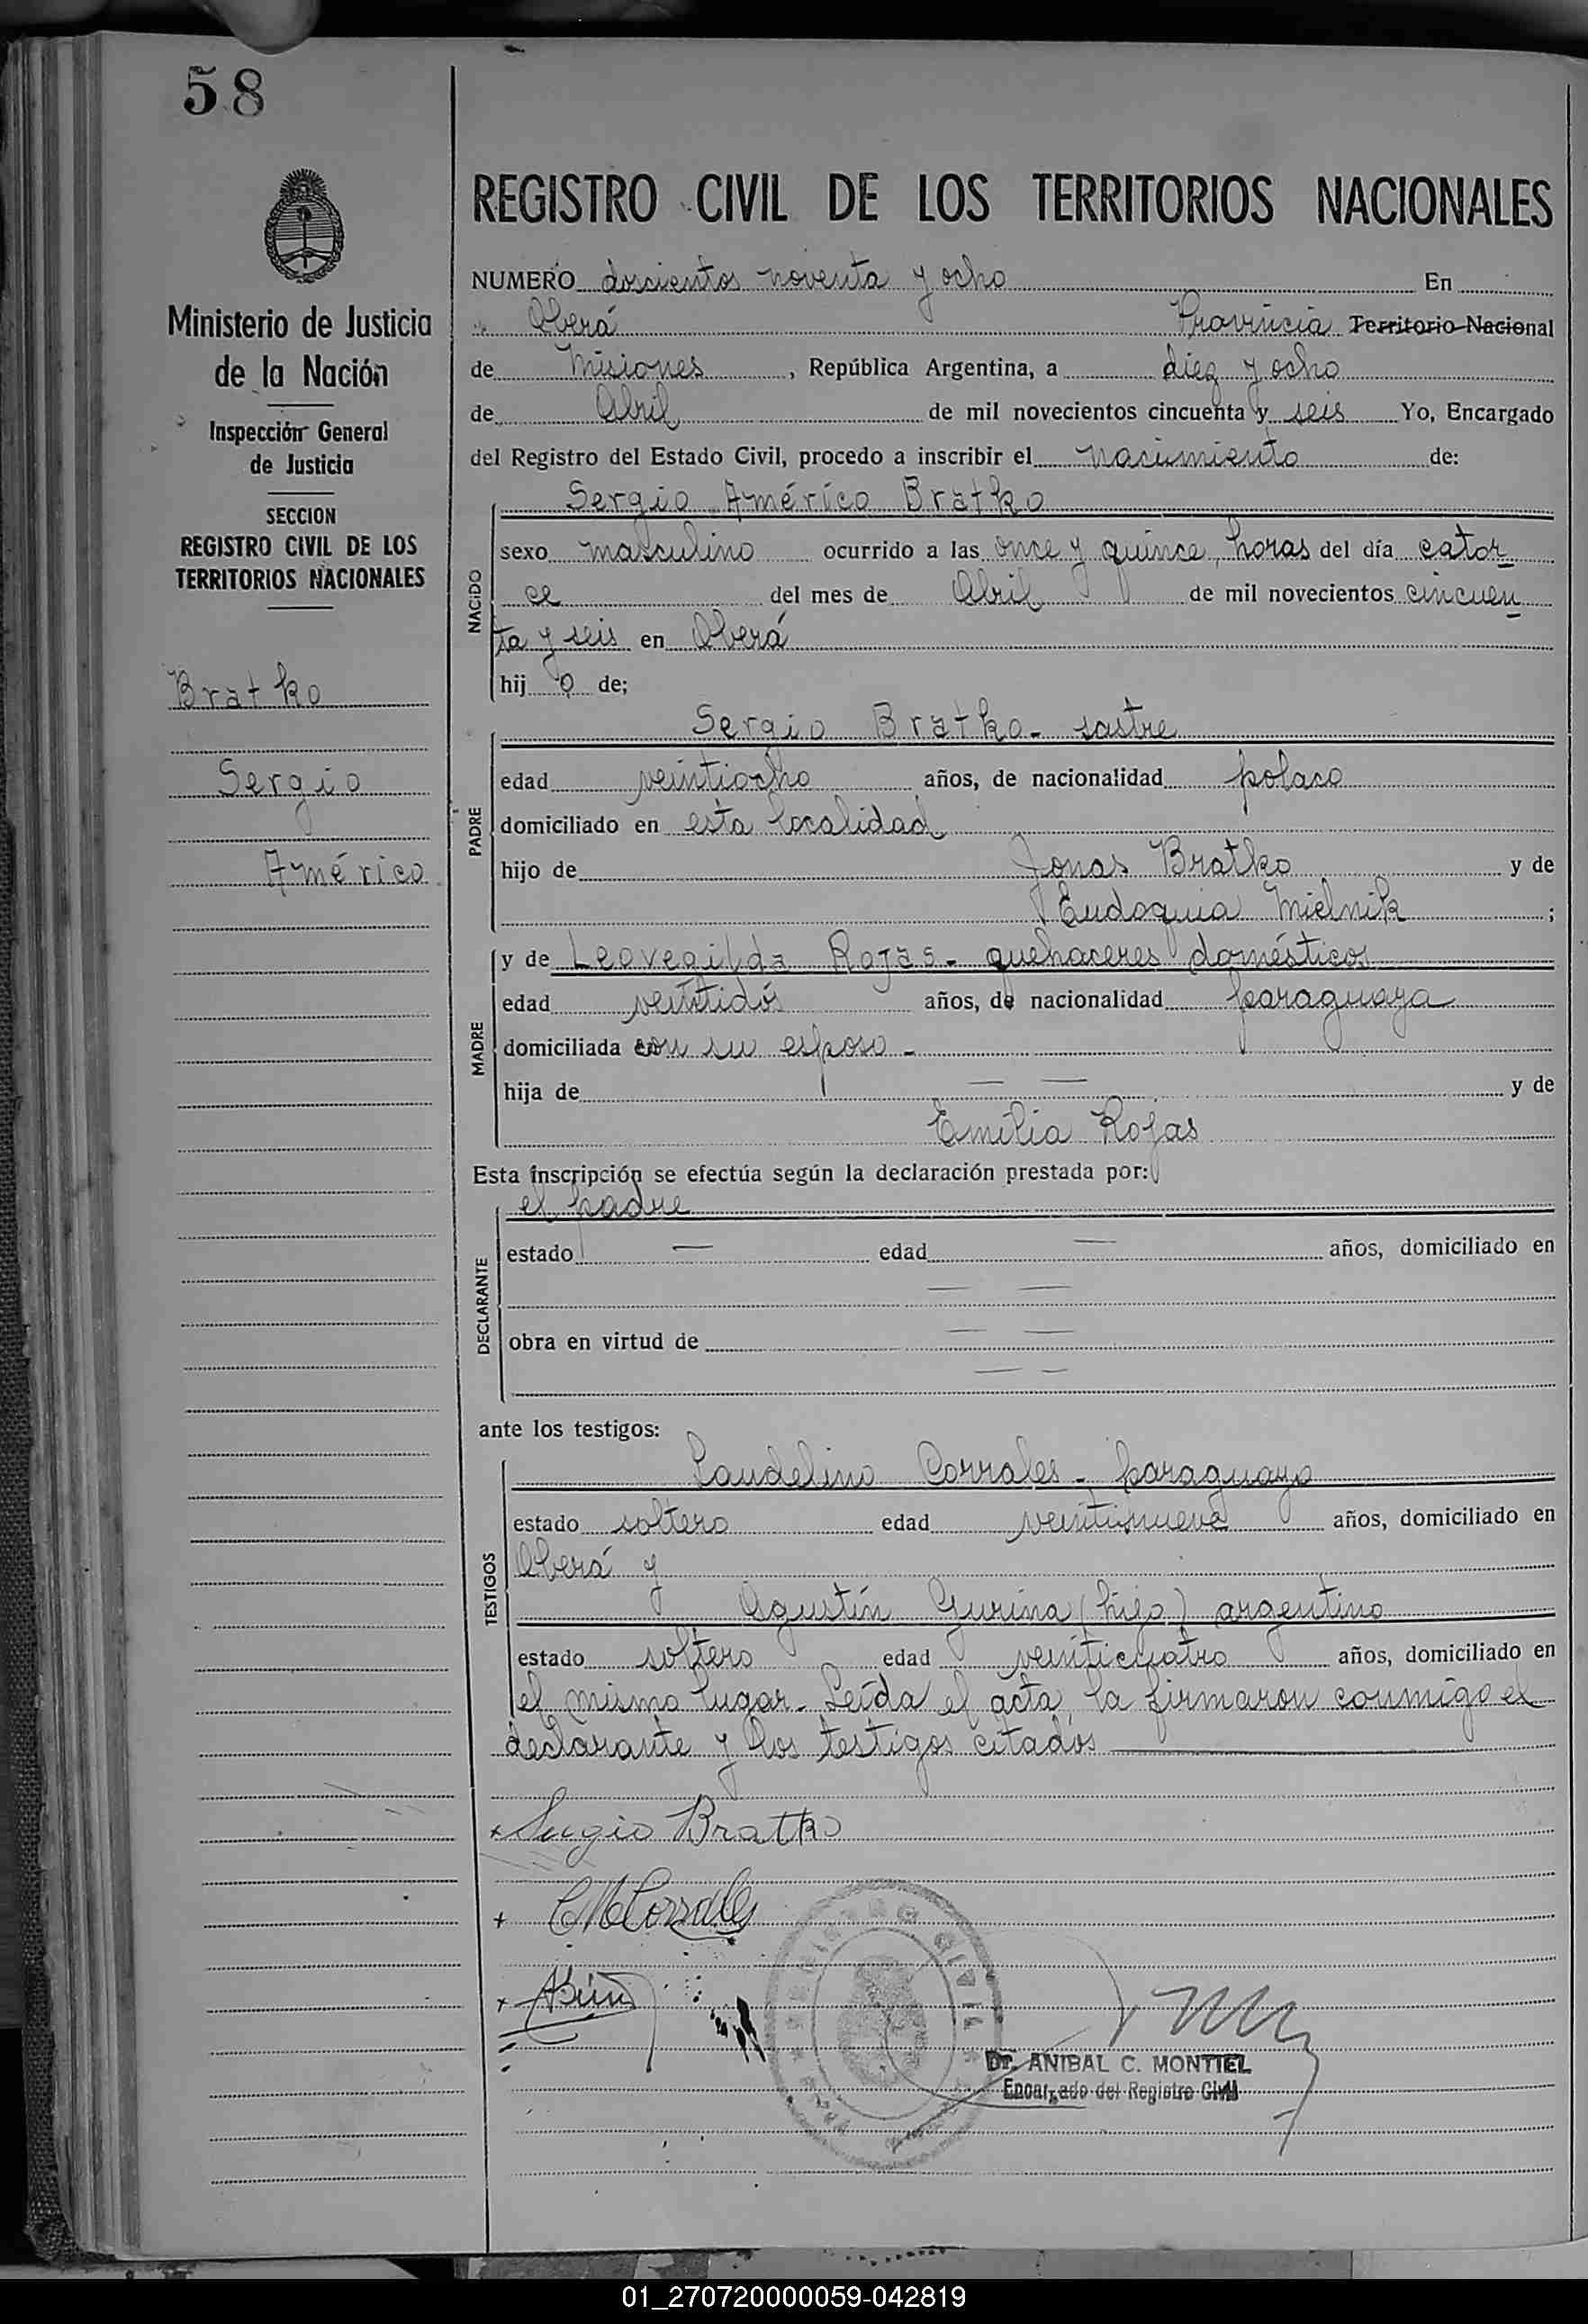 58
Ministerio de Justicia
de la Nación
Inspección General
de Justicia
SECCION
REGISTRO CIVIL DE LOS
TERRITORIOS NACIONALES
Bratko
Sergio
Américo
REGISTRO CIVIL DE LOS TERRITORIOS NACIONALES
NUMERO doscientos noventa y ocho En
Oberá Provincia Territorio Nacional
de Misiones, República Argentina, a diez y ocho
de Abril de mil novecientos cincuenta y seis Yo, Encargado
del Registro del Estado Civil, procedo a inscribir el nacimiento de:
Sergio Américo Bratko
NACIDO
sexo masculino ocurrido a las once y quince horas del día cator
ce del mes de Abril de mil novecientos cincuen
ta y seis en Oberá
hijo de;
Sergio Bratko - sastre
PADRE
edad veintiocho años, de nacionalidad polaco
domiciliado en esta localidad
hijo de Jonas Bratko y de
Eudoquia Mielnik ;
MADRE
y de Leovegilda Rojas - quehaceres domésticos
edad veintidós años, de nacionalidad paraguaya
domiciliada con su esposo -
hija de — — y de
Emilia Rojas
Esta inscripción se efectúa según la declaración prestada por:
el padre
DECLARANTE
estado — edad — años, domiciliado en
— —
obra en virtud de — —
— —
ante los testigos:
TESTIGOS
Laudelino Corrales - paraguayo
estado soltero edad veintinueve años, domiciliado en
Oberá y
Agustín Gurina (hijo) argentino
estado soltero edad veinticuatro años, domiciliado en
el mismo lugar - Leída el acta, la firmaron conmigo el
declarante y los testigos citados
+ Sergio Bratko
+ Corrales
+
REGISTRO CIVIL
Dr. ANIBAL C. MONTIEL
Encargado del Registro Civil
01_270720000059-042819